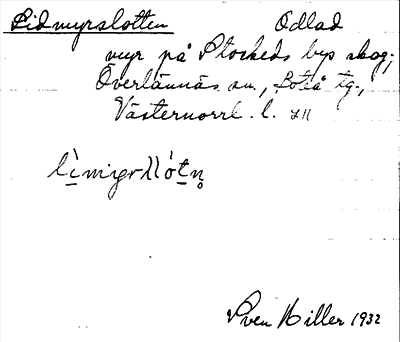 Lidmyrslotten Odlad
myr på Stockeds bys skog,
Överlännäs sn, Boteå tg.,
Västernorrl. l.
Sven Hiller 1932